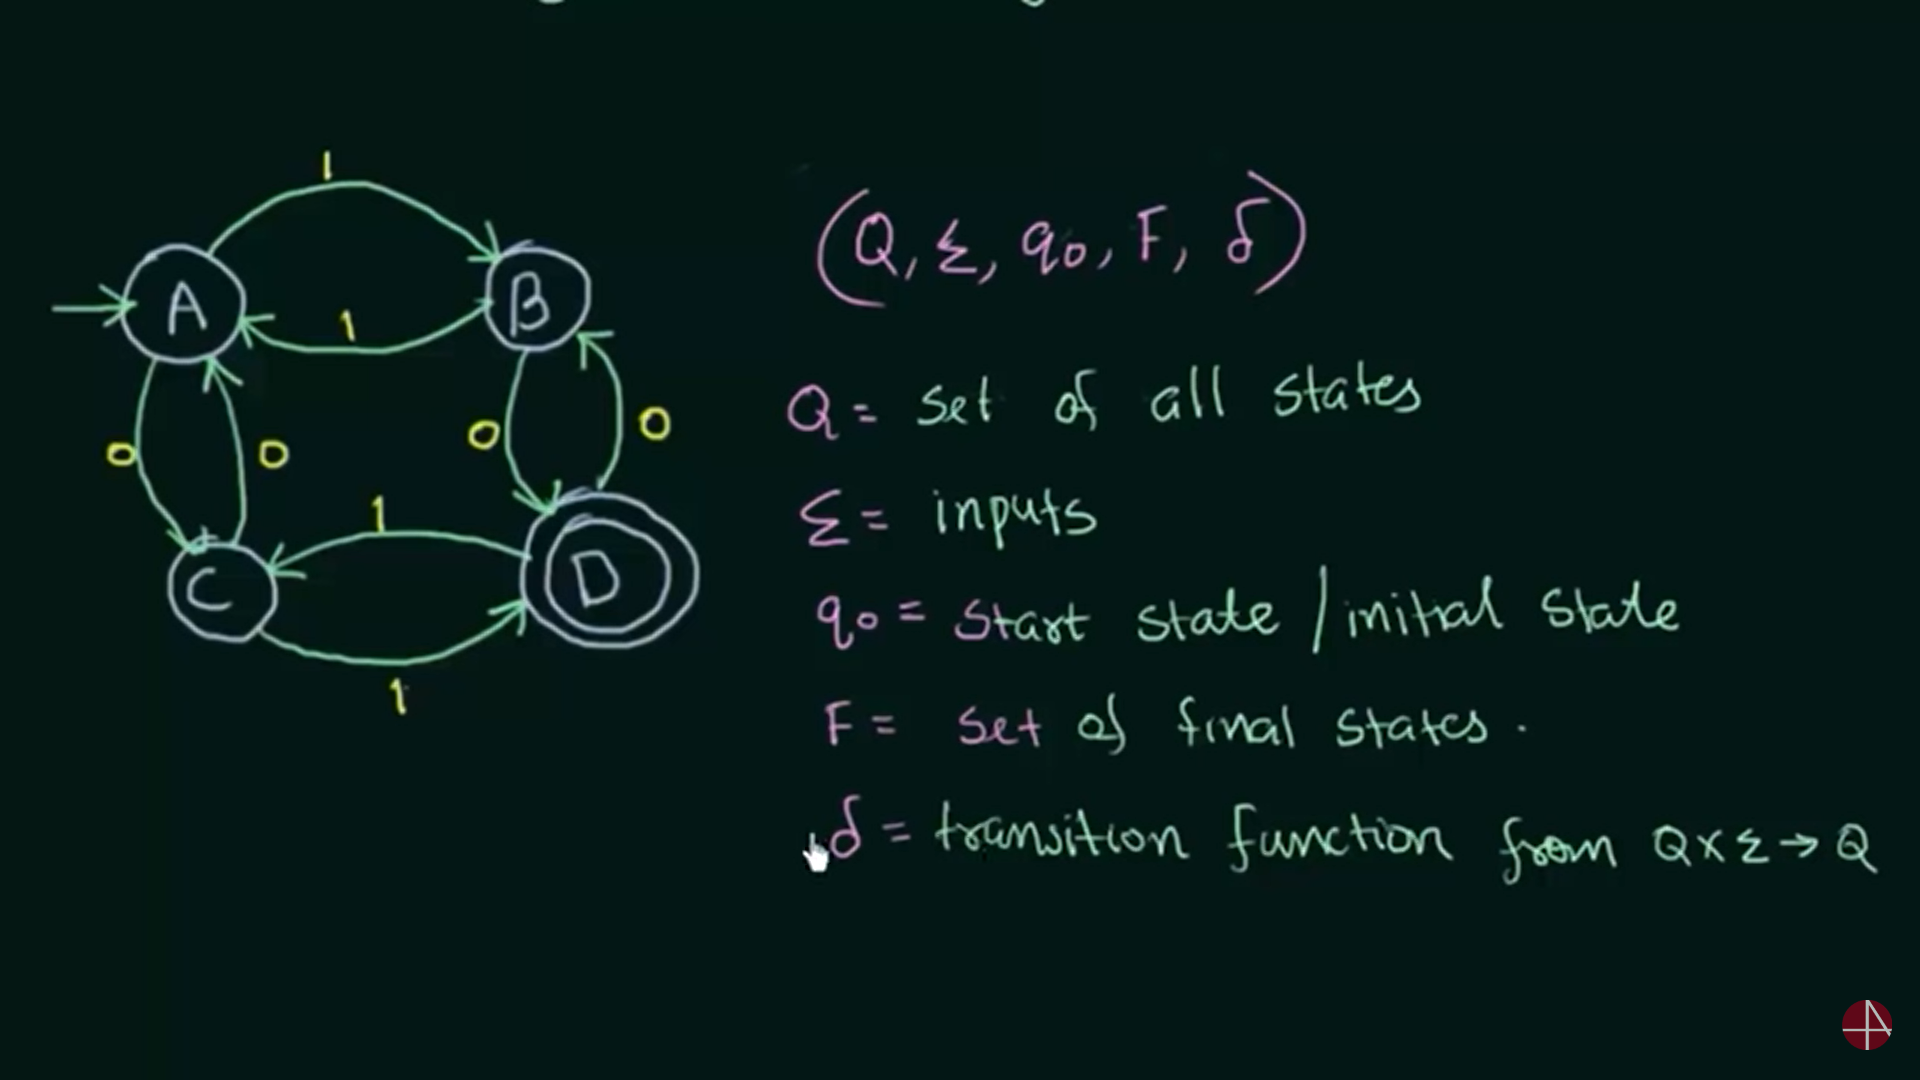 1
A
B
1
0
0
0
0
1
C
D
1
(Q, Σ, q0, F, δ)
Q = set of all states
Σ = inputs
q0 = start state / initial state
F = set of final states.
δ = transition function from Q×Σ → Q